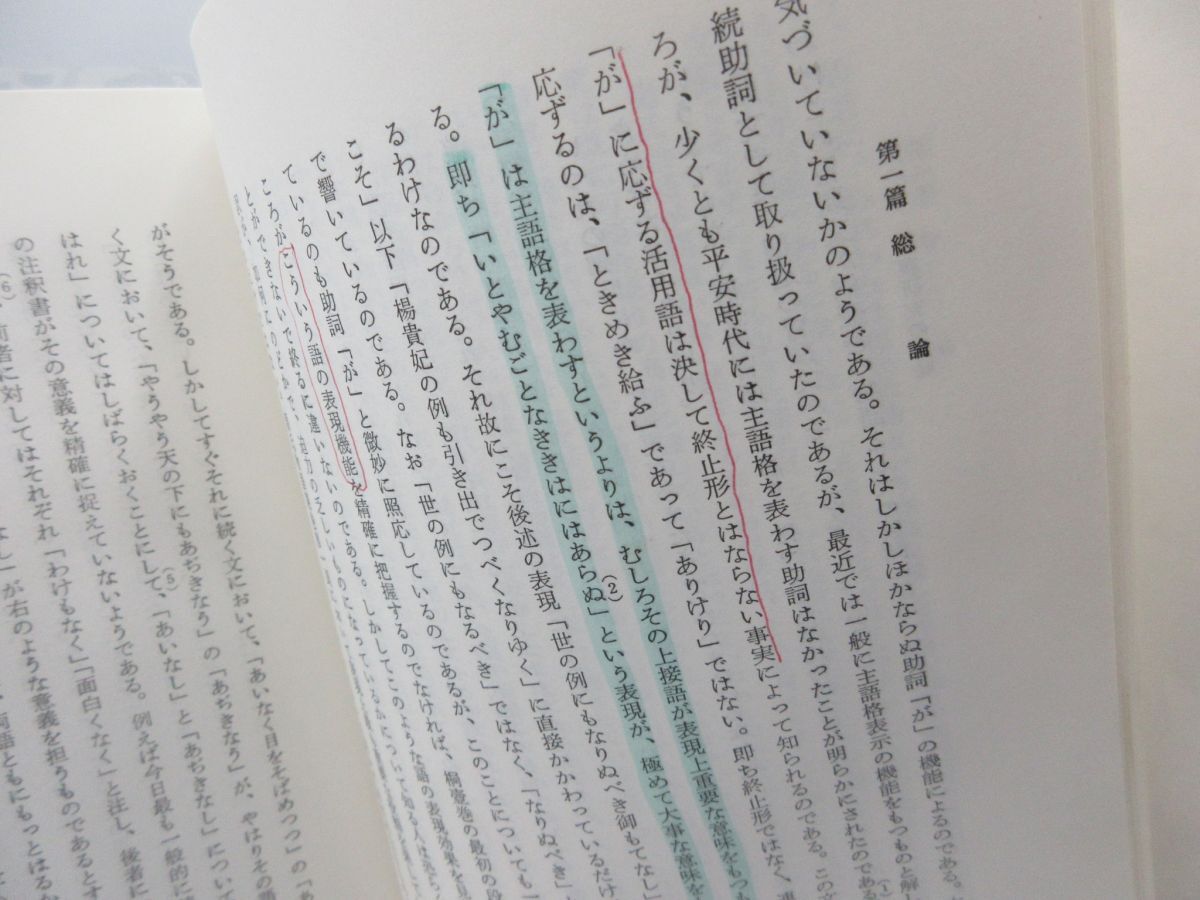 第一篇 総論
気づいていないかのようである。それはしかしほかならぬ助詞「が」の機能によるのである。
続助詞として取り扱っていたのであるが、最近では一般に主語格表示の機能をもつものと解し
ろが、少くとも平安時代には主語格を表わす助詞はなかったことが明らかにされたのである
(1)
「が」に応ずる活用語は決して終止形とはならない事実によって知られるのである。この
応ずるのは、「ときめき給ふ」であって「ありけり」ではない。即ち終止形ではなく、連
「が」は主語格を表わすというよりは、むしろその上接語が表現上重要な意味をもつ
る。即ち「いとやむごとなききはにはあらぬ」という表現が、極めて大事な意味を
(2)
るわけなのである。それ故にこそ後述の表現「世の例にもなりぬべき御もてなし」
こそ」以下「楊貴妃の例も引き出でつべくなりゆく」に直接かかわっているだけ
で響いているのである。なお「世の例にもなるべき」ではなく、「なりぬべき」
ているのも助詞「が」と微妙に照応しているのであるが、このことについても
ころがこういう語の表現機能を精確に把握するのでなければ、桐壺巻の最初の段
とができないで終るに違いないのである。しかしてこのような語の表現効果を
がそうである。しかしてすぐそれに続く文において、「あいなく目をそばめつつ」の「あ
く文において、「やうやう天の下にもあぢきなう」の「あぢきなう」が、やはりその
はれ」についてはしばらくおくことにして、「あいなし」と「あぢきなし」につい
(5)
の注釈書がその意義を精確に捉えていないようである。例えば今日最も一般的に
(6)
前者に対してはそれぞれ「わけもなく」「面白くなく」と注し、後者に
なし」が右のような意義を担うものであるとす
両語ともにもっとはるか